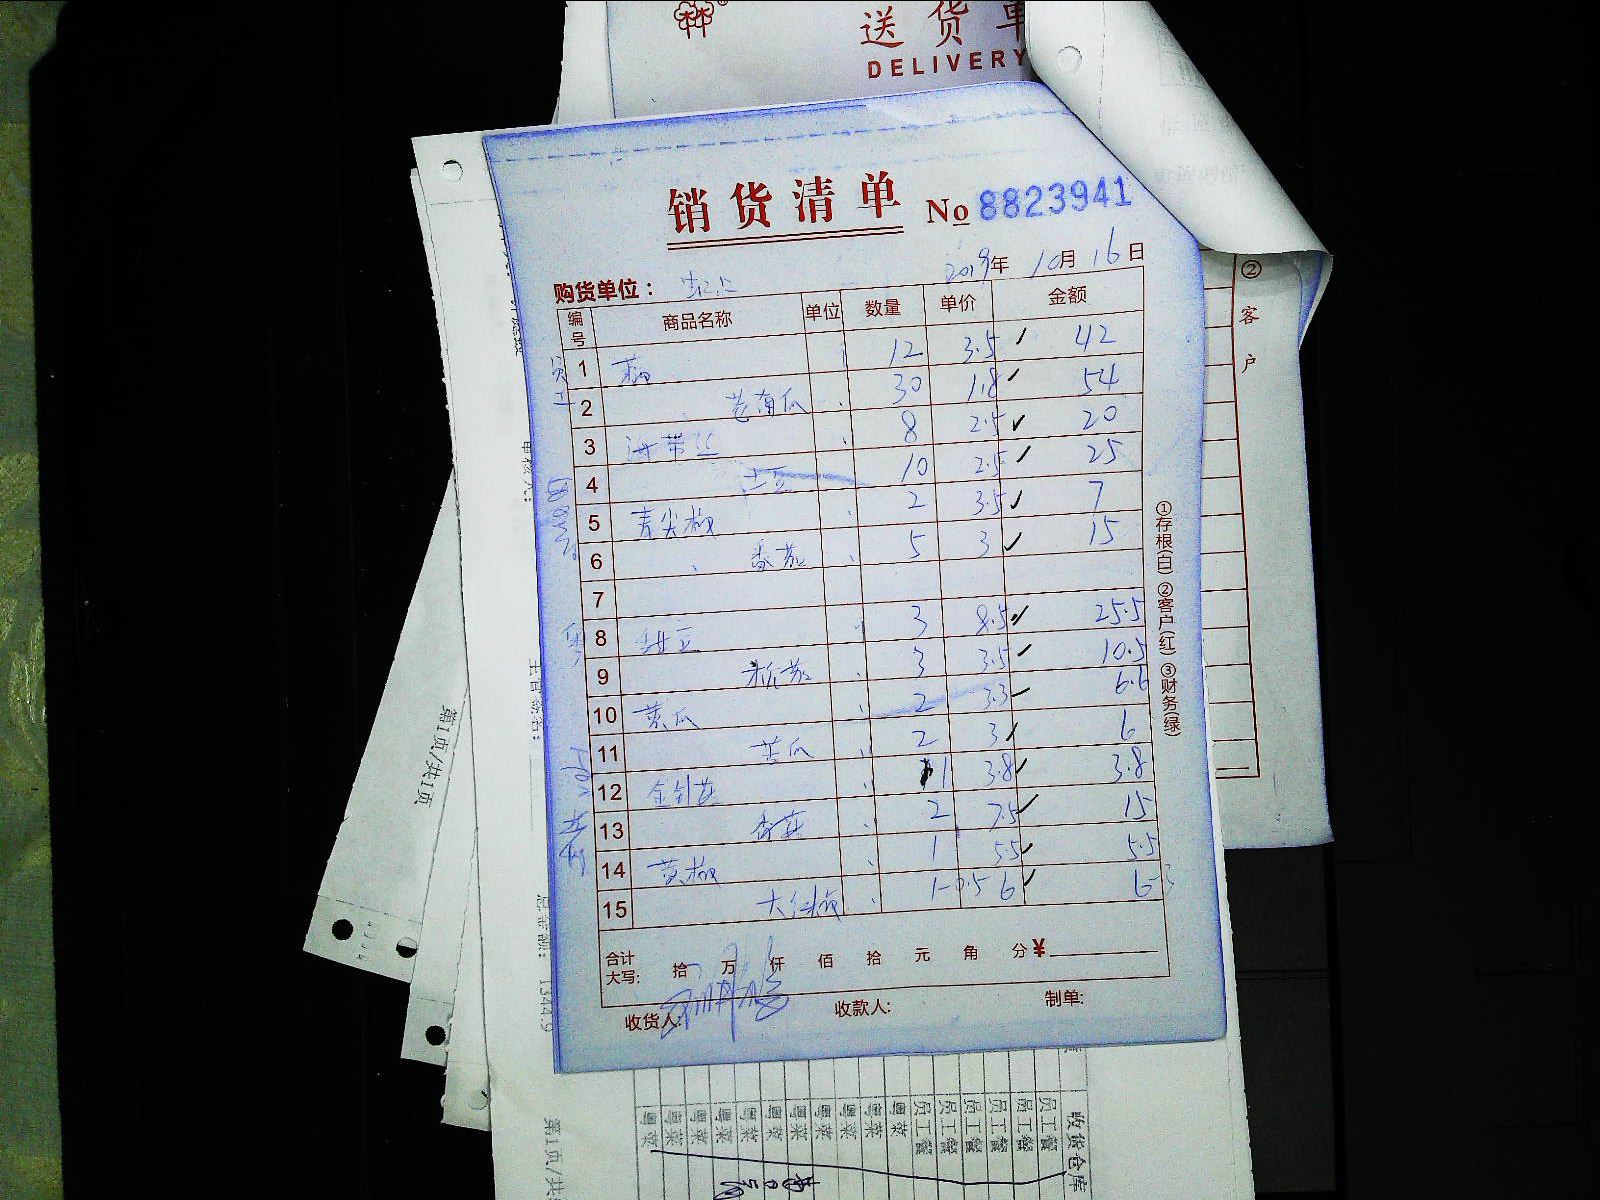 送货单
DELIVERY
销货清单 No 8823941
2019年 10月 16日
购货单位：
编号 商品名称 单位 数量 单价 金额
1 12 3.5 ✓ 42
2 老南瓜 30 1.8 ✓ 54
3 海带丝 8 2.5 ✓ 20
4 土豆 10 2.5 ✓ 25
5 青尖椒 2 3.5 ✓ 7
6 番茄 5 3 ✓ 15
7
8 甜豆 3 8.5 ✓ 25.5
9 3 3.5 ✓ 10.5
10 黄瓜 2 3.3 ✓ 6.6
11 苦瓜 2 3 ✓ 6
12 金针菇 1 3.8 ✓ 3.8
13 香菇 2 7.5 ✓ 15
14 黄椒 1 5.5 ✓ 5.5
15 大红椒 1-0.5 6 ✓ 6-3
合计
大写: 拾 万 仟 佰 拾 元 角 分 ¥
收货人: 收款人: 制单:
①存根(白) ②客户(红) ③财务(绿)
② 客户
员工
第1页/共1页
1344.9
第1页/共
收货仓库
员工餐
员工餐
员工餐
员工餐
员工餐
员工餐
粤菜
粤菜
粤菜
粤菜
粤菜
粤菜
粤菜
粤菜
粤菜
粤菜
粤菜